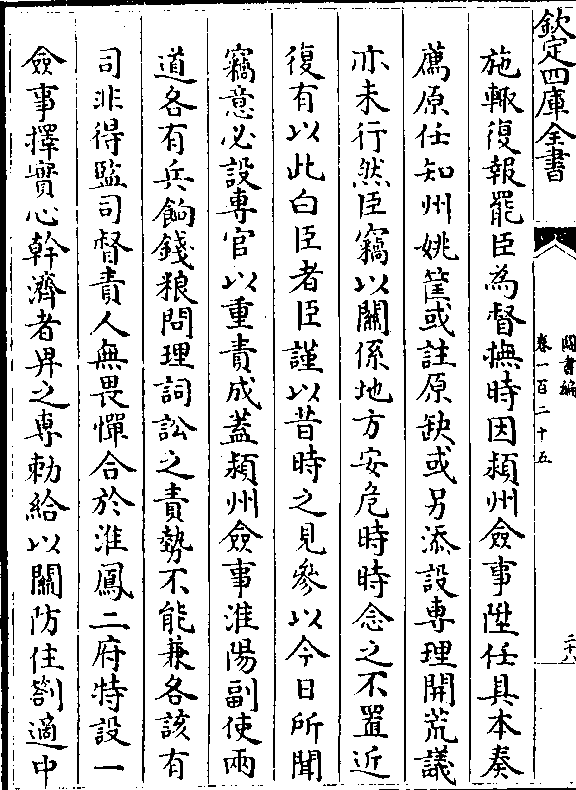 欽定四庫全書
圖書編
卷一百二十五
二十八
施輙復報罷臣為督撫時因潁州僉事陞任具本奏
薦原任知州姚筐或註原缺或另添設專理開荒議
亦未行然臣竊以關係地方安危時時念之不置近
復有以此白臣者臣謹以昔時之見參以今日所聞
竊意必設專官以重責成蓋潁州僉事淮陽副使兩
道各有兵餉錢粮問理詞訟之責勢不能兼各該有
司非得監司督責人無畏憚合於淮鳳二府特設一
僉事擇實心幹濟者昇之專勅給以關防住劄適中